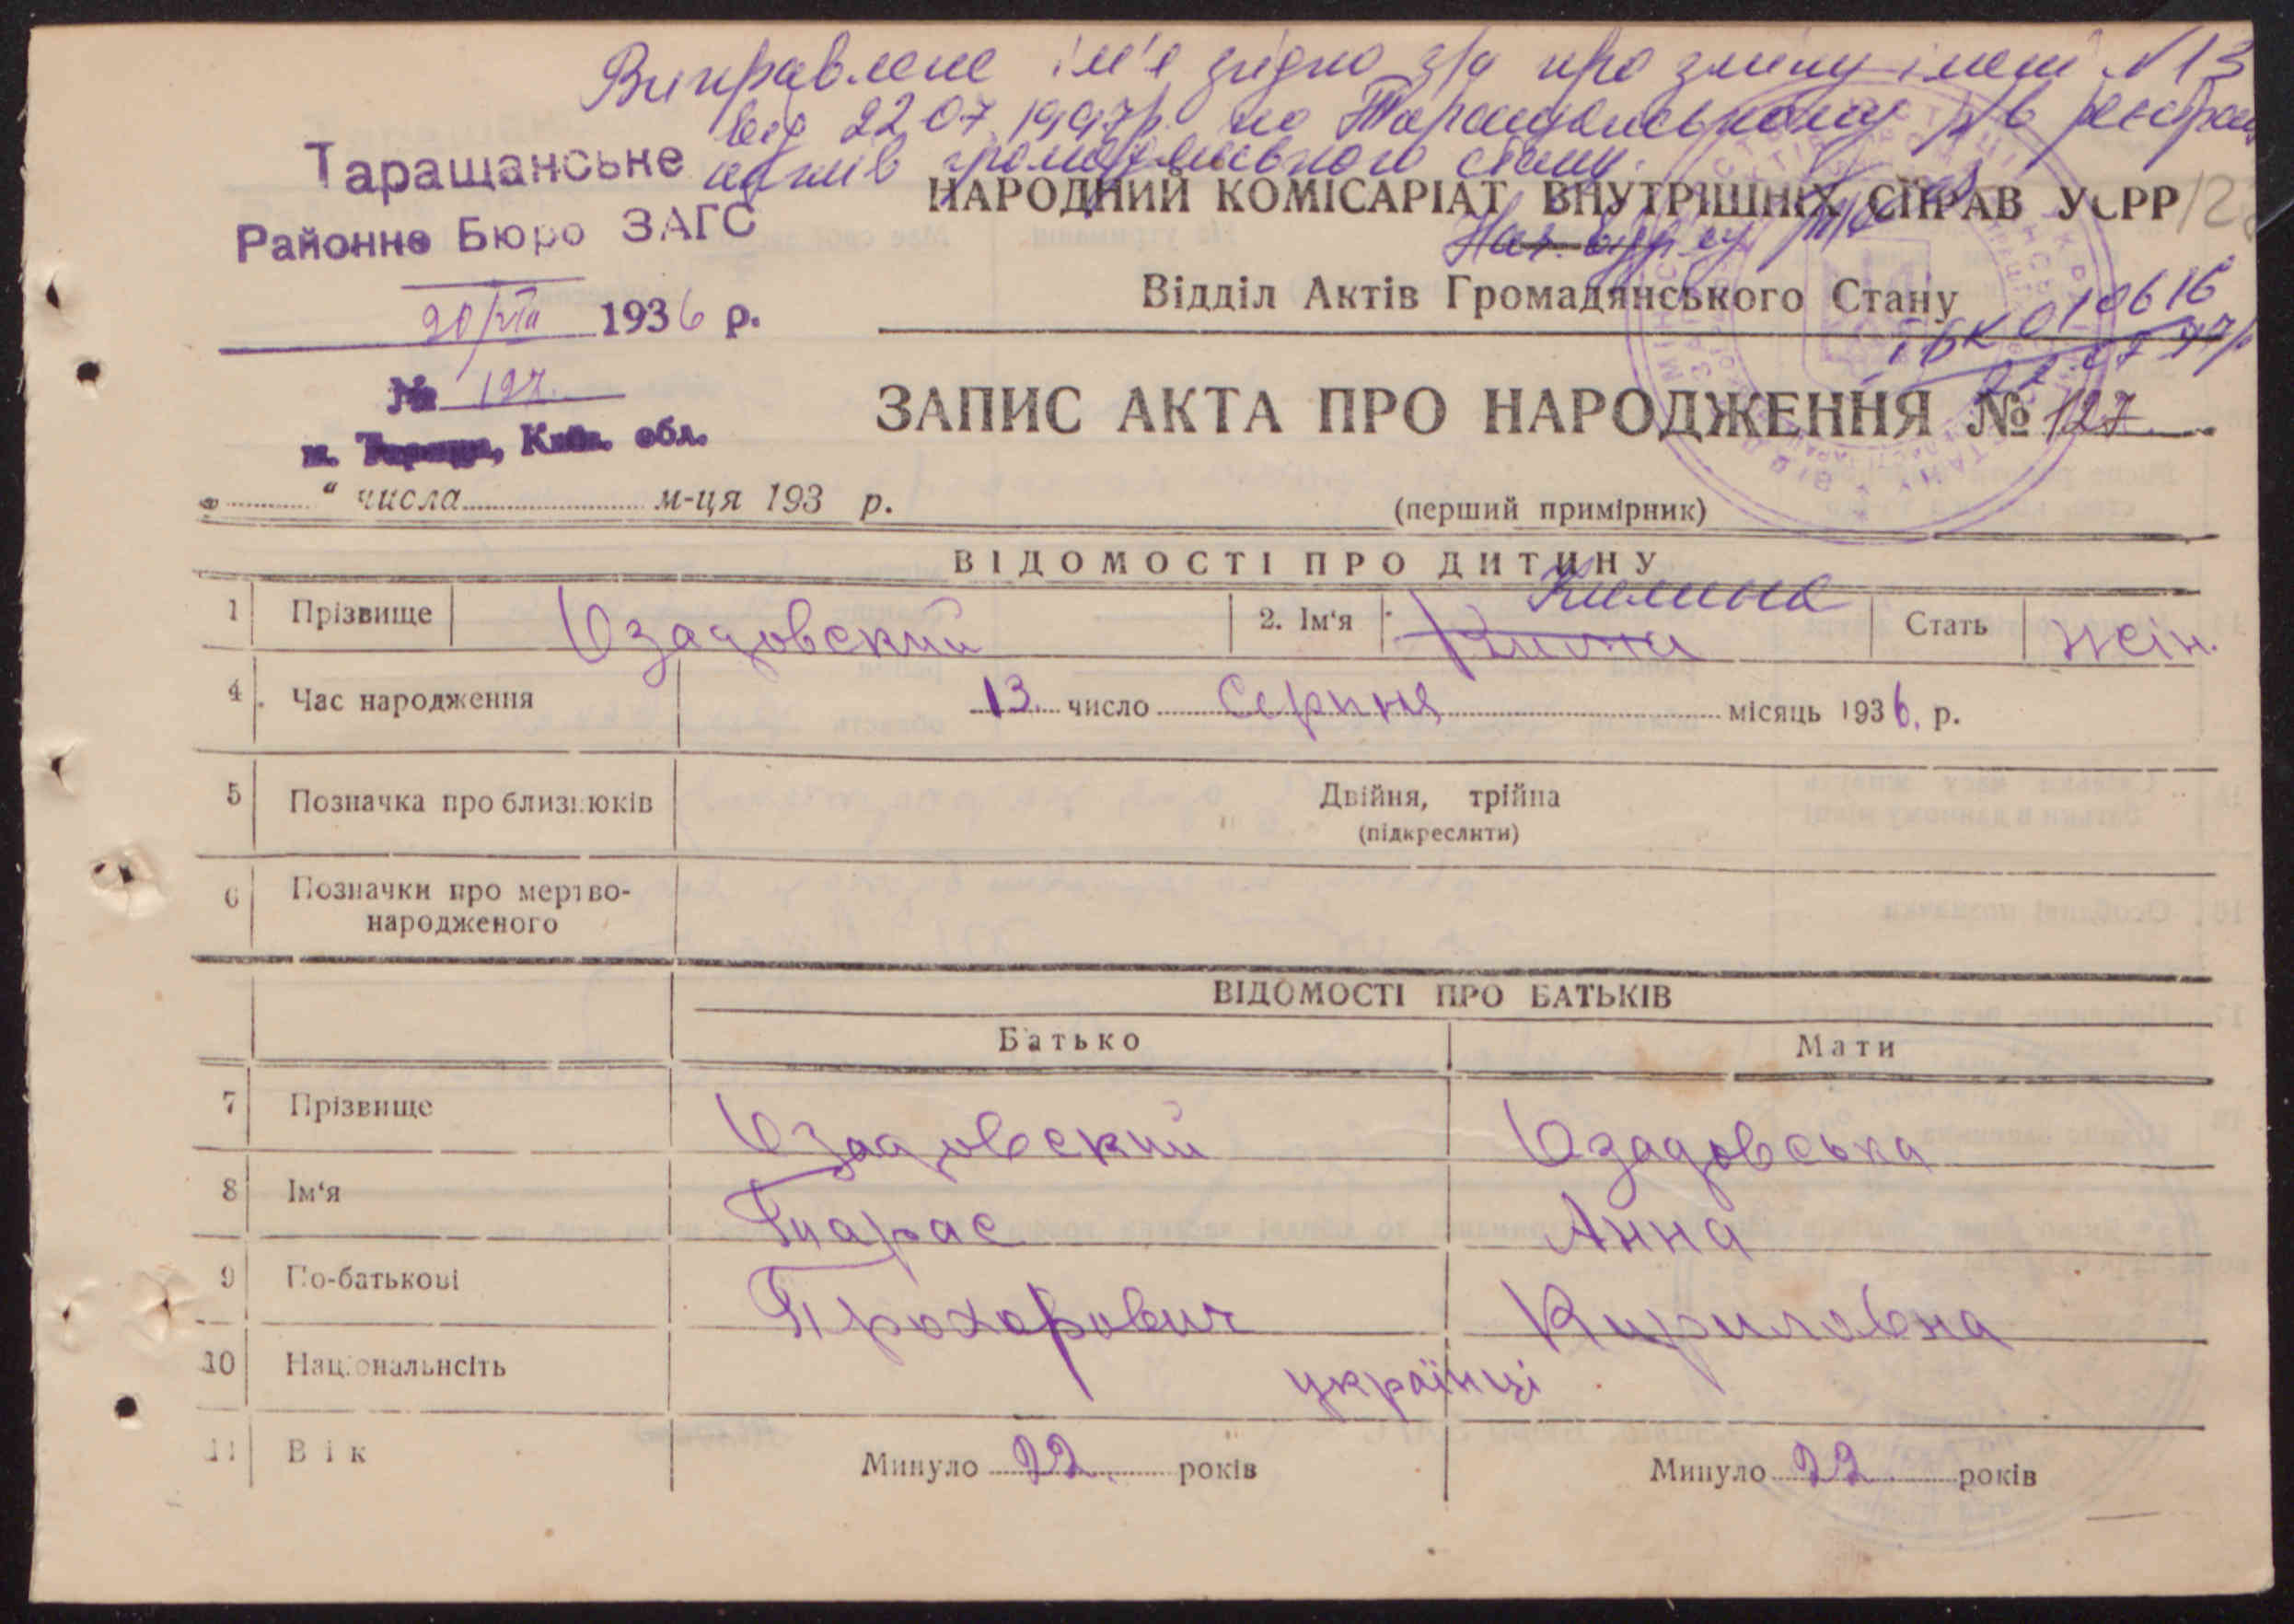 Виправлене ім'я згідно з/а про зміну імені №13
від 22.07.1997р. по Таращанському р/в реєстрації
актів громадянського стану.
Таращанське
Районне Бюро ЗАГС
20/VIII 1936 р.
№ 127.
м. Тараща, Київ. обл.
НАРОДНИЙ КОМІСАРІАТ ВНУТРІШНІХ СПРАВ УСРР
Нач. відділу
Відділ Актів Громадянського Стану
І БК 010616
22.07.97р
ЗАПИС АКТА ПРО НАРОДЖЕННЯ № 127.
„ “ числа м-ця 193 р.
(перший примірник)
ВІДОМОСТІ ПРО ДИТИНУ
1 Прізвище Озадовский 2. Ім‘я Килина Стать жін.
4. Час народження 13. число Серпня місяць 1936. р.
5 Позначка про близнюків Двійня, трійна
(підкреслити)
6 Позначки про мертво-
народженого
ВІДОМОСТІ ПРО БАТЬКІВ
Батько Мати
7 Прізвище Озадовский Озадовська
8 Ім‘я Тарас Анна
9 По-батькові Прохорович Кириловна
10 Національнсіть українці
11 Вік Минуло 22. років Минуло 22 років